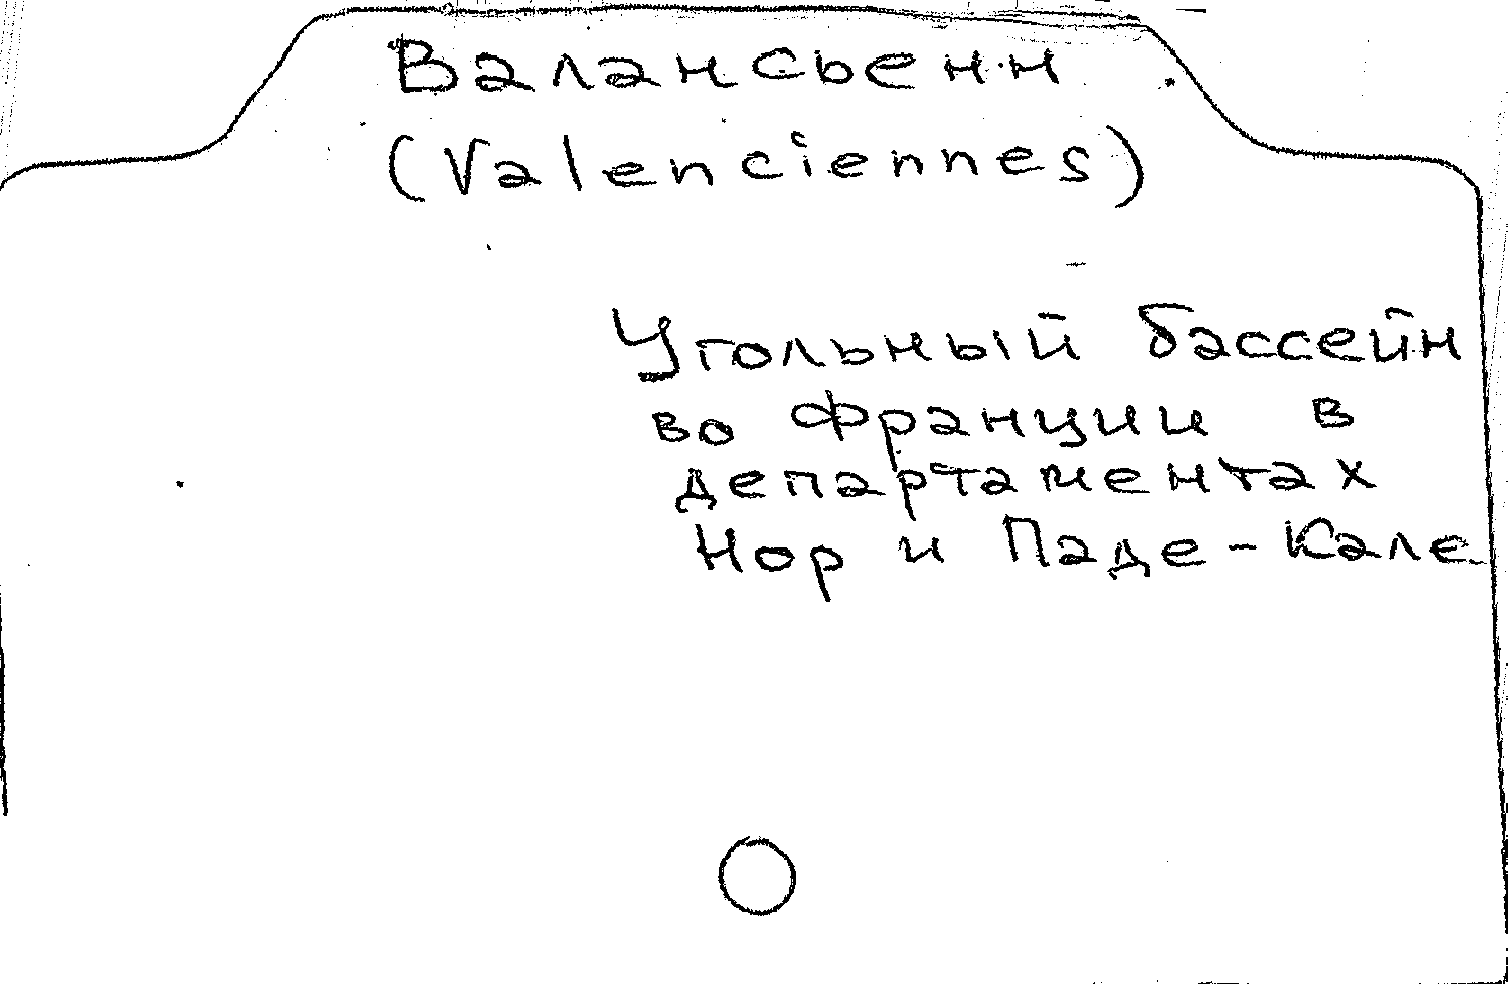 Валансьенн
(Valenciennes)
Угольный бассейн
во Франции в
департаментах
Нор и Паде-Кале